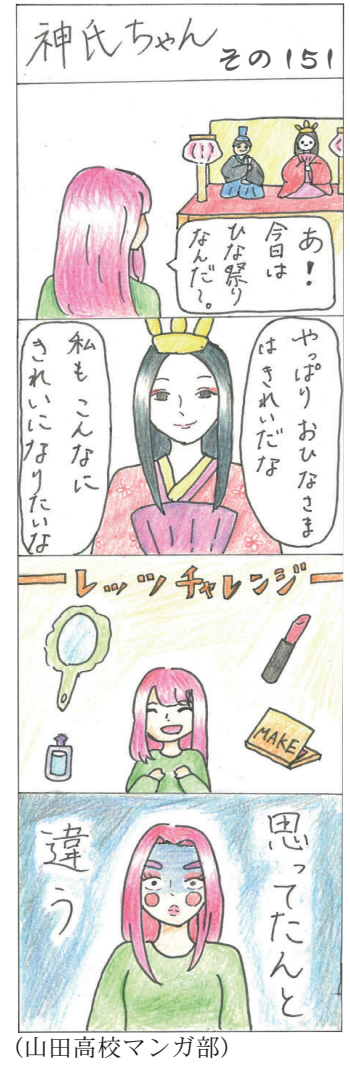 神氏ちゃん
その151
あ!
今日は
ひな祭り
なんだ〜。
やっぱり おひなさま
はきれいだな
私も こんなに
きれいになりたいな
レッツチャレンジ
MAKE
思ってたんと
違う
(山田高校マンガ部)